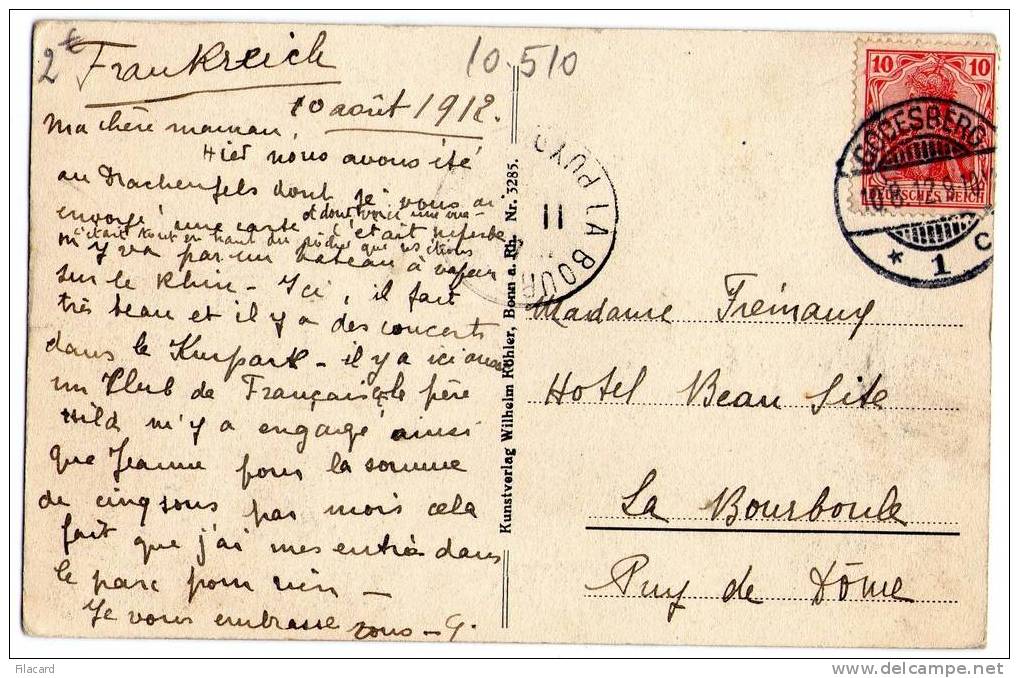 2€
Frankreich
10.510
10 août 1912.
Ma chère maman,
Hier nous avons été
au Drachenfels dont je vous ai
envoyé une carte et dont voici une vue - c'était superbe
c'était tout en haut du rocher que nous étions
m'y va par un bateau à vapeur
sur le Rhin - Ici, il fait
très beau et il y a des concerts
dans le Kurpark - il y a ici aussi
un Club de Français, le père
Wild m'y a engagé ainsi
que Jeanne pour la somme
de cinq sous par mois cela
fait que j'ai mes entrées dans
le parc pour rien -
Je vous embrasse
tous - G.
Kunstverlag Wilhelm Köhler, Bonn a. Rh. Nr. 3285.
LA BOUR
PUY D
11
10 10
DEUTSCHES REICH
GODESBERG
10.8.12.9-10
* 1 c
Madame Frémaux
Hotel Beau Site
La Bourboule
Puy de Dôme
Filacard
www.delcampe.net